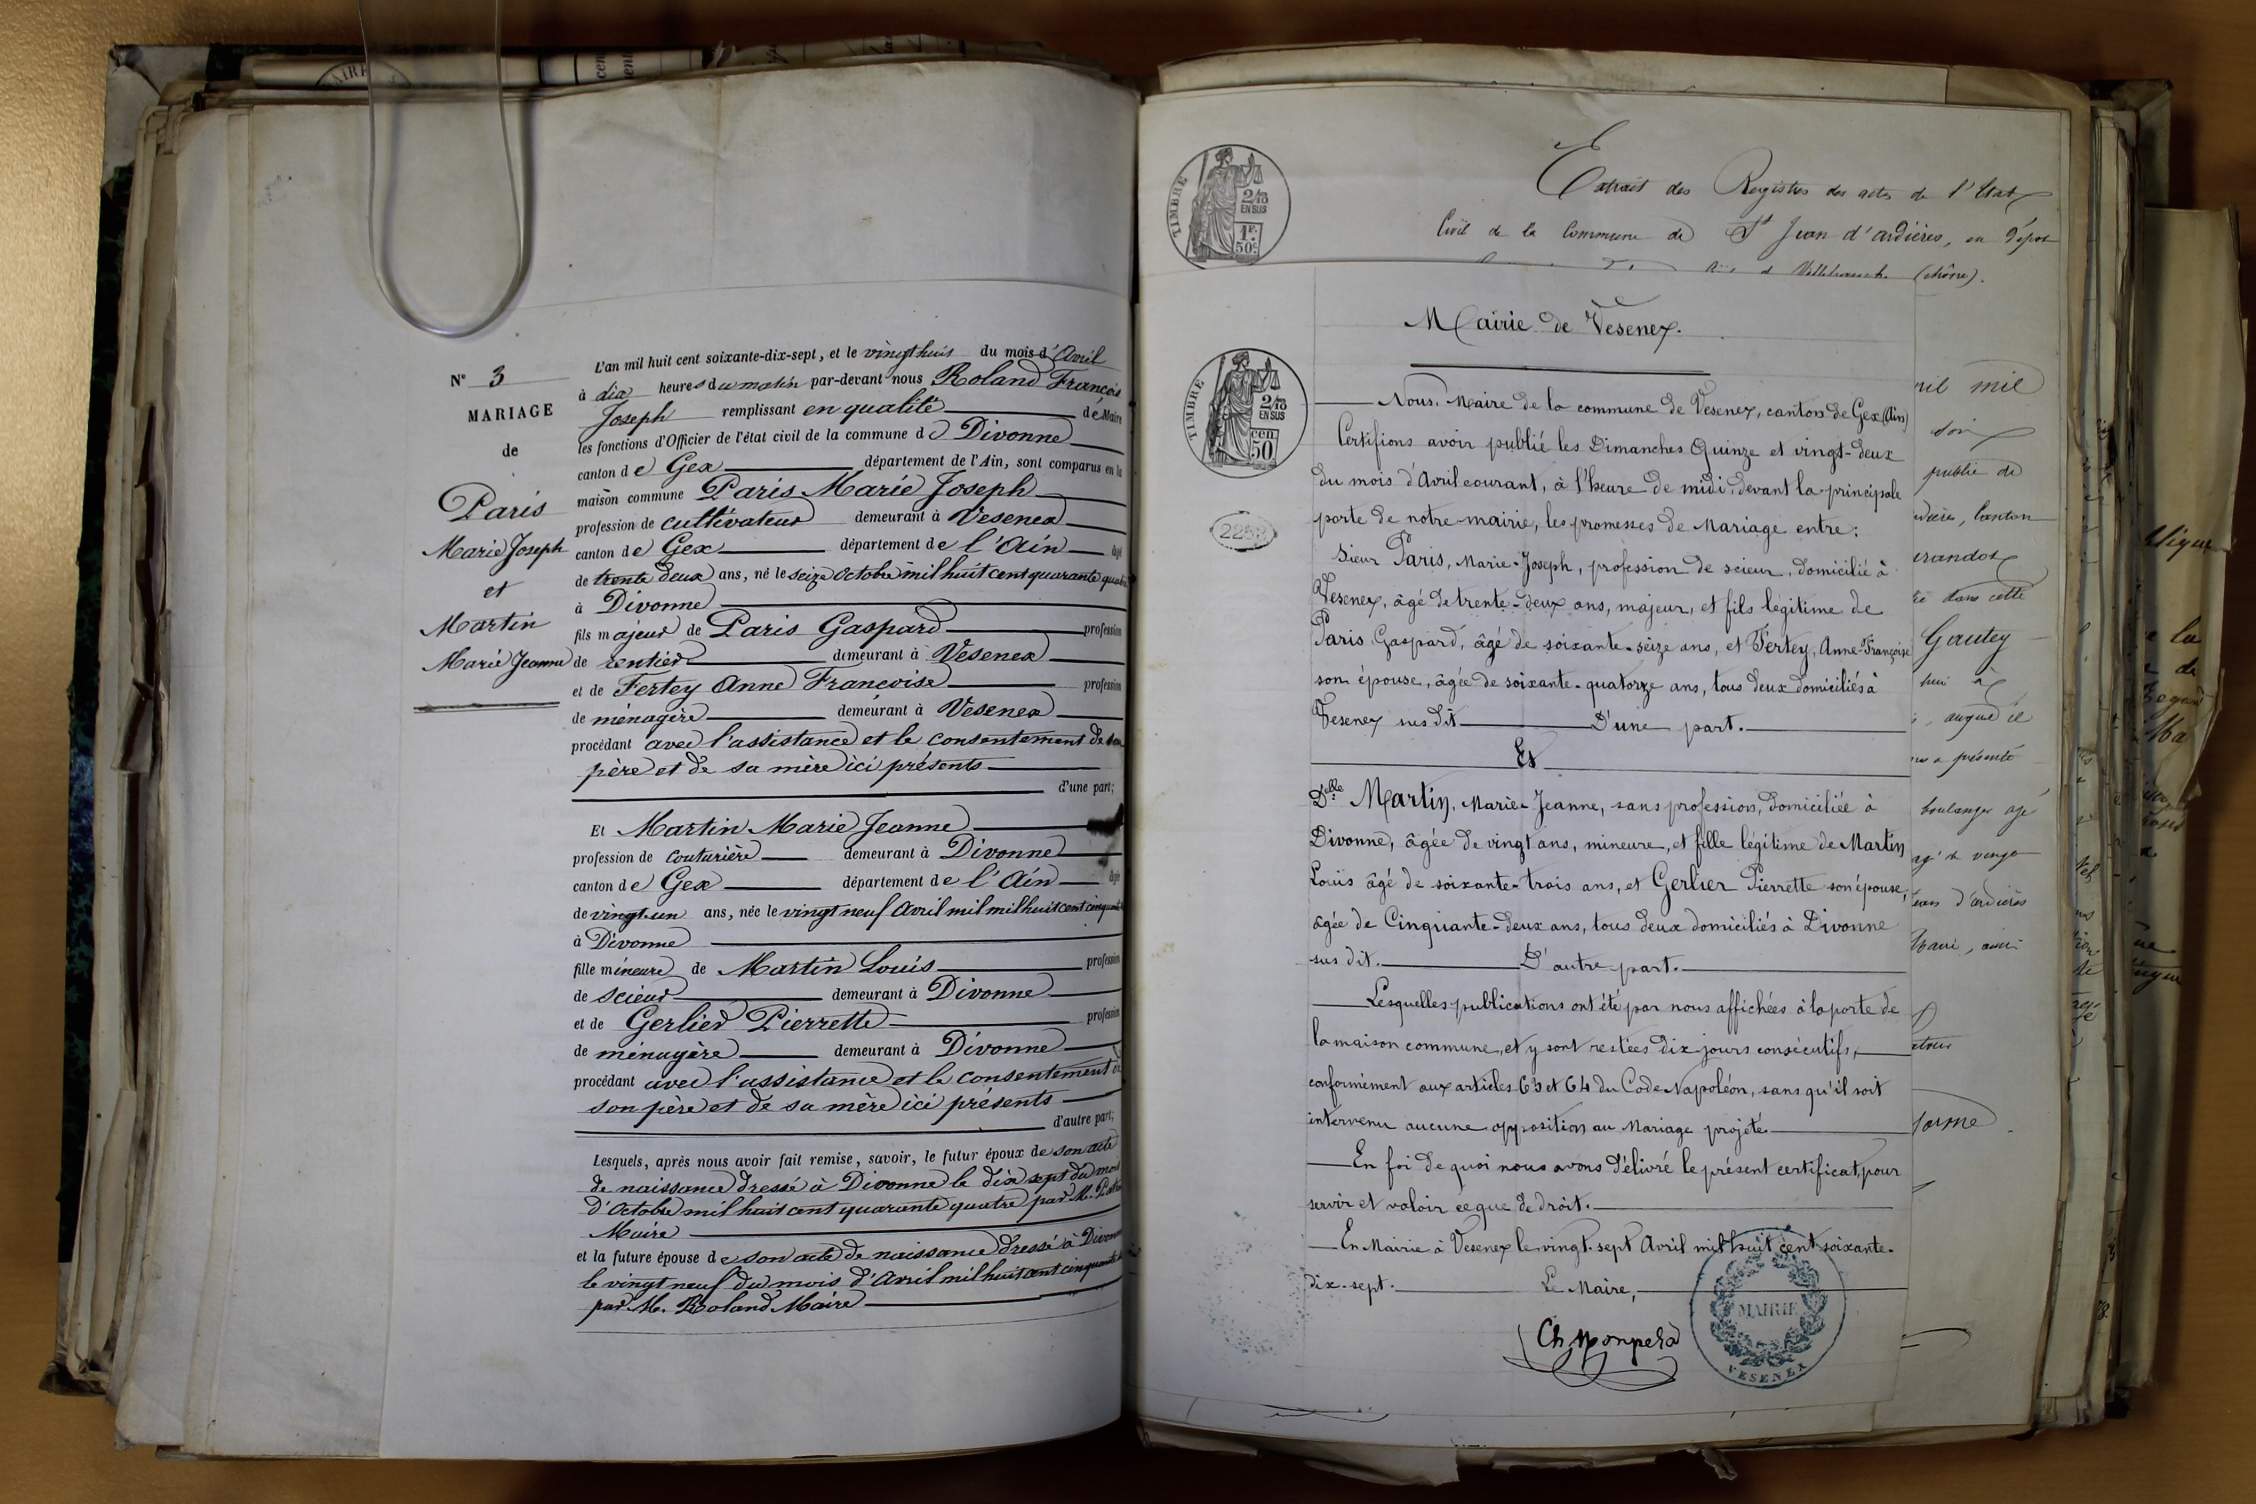 N° 3
MARIAGE
de
Paris
Marie Joseph
et
Martin
Marie Jeanne
L'an mil huit cent soixante-dix-sept, et le vingt huit du mois d'Avril
à dix heures du matin par-devant nous Roland François
Joseph remplissant en qualité de Maire
les fonctions d'Officier de l'état civil de la commune de Divonne
canton de Gex département de l'Ain, sont comparus en la
maison commune Paris Marie Joseph
profession de cultivateur demeurant à Vesenex
canton de Gex département de l'Ain âgé
de trente deux ans, né le seize Octobre mil huit cent quarante quatre
à Divonne
fils majeur de Paris Gaspard profession
de rentier demeurant à Vesenex
et de Fertey Anne Françoise profession
de ménagère demeurant à Vesenex
procédant avec l'assistance et le consentement de son
père et de sa mère ici présents
d'une part;
Et Martin Marie Jeanne
profession de couturière demeurant à Divonne
canton de Gex département de l'Ain âgée
de vingt un ans, née le vingt neuf Avril mil mil huit cent
à Divonne
fille mineure de Martin Louis profession
de scieur demeurant à Divonne
et de Gerlier Pierrette profession
de ménagère demeurant à Divonne
procédant avec l'assistance et le consentement de
son père et de sa mère ici présents
d'autre part;
Lesquels, après nous avoir fait remise, savoir, le futur époux de son acte
de naissance dressé à Divonne le dix sept du mois
d'Octobre mil huit cent quarante quatre par M.
Maire
et la future épouse de son acte de naissance dressé à Divonne
le vingt neuf du mois d'Avril mil huit cent
par M. Roland Maire
TIMBRE
2/10
EN SUS
1F.
50c
Extrait des Registres des actes de l'Etat
Civil de la Commune de St Jean d'ardières, en dépot
Villefranche (Rhône).
Mairie de Vesenex.
TIMBRE
2/10
EN SUS
cen
50
Nous, Maire de la commune de Vesenex, canton de Gex (Ain)
Certifions avoir publié les Dimanches Quinze et vingt-deux
du mois d'Avril courant, à l'heure de midi, devant la principale
porte de notre mairie, les promesses de Mariage entre:
Sieur Paris, Marie-Joseph, profession de scieur, domicilié à
Vesenex, âgé de trente-deux ans, majeur, et fils légitime de
Paris Gaspard, âgé de soixante-seize ans, et Fertey, Anne-Françoise
son épouse, âgée de soixante-quatorze ans, tous deux domiciliés à
Vesenex sus dit D'une part.
Et
Delle Martin, Marie-Jeanne, sans profession, domiciliée à
Divonne, âgée de vingt ans, mineure, et fille légitime de Martin
Louis âgé de soixante-trois ans, et Gerlier Pierrette son épouse,
âgée de Cinquante-deux ans, tous deux domiciliés à Divonne
sus dit. D'autre part.
Lesquelles publications ont été par nous affichées à la porte de
la maison commune, et y sont restées dix jours consécutifs,
conformément aux articles 63 et 64 du Code Napoléon, sans qu'il soit
intervenu aucune opposition au Mariage projeté.
En foi de quoi nous avons délivré le présent certificat, pour
servir et valoir ce que de droit.
En Mairie à Vesenex le vingt-sept Avril mil huit cent soixante-
dix-sept. Le Maire,
MAIRIE
VESENEX
mil
publié de
canton
dans cette
Gautey
a présenté
boulanger agé
d'ardières